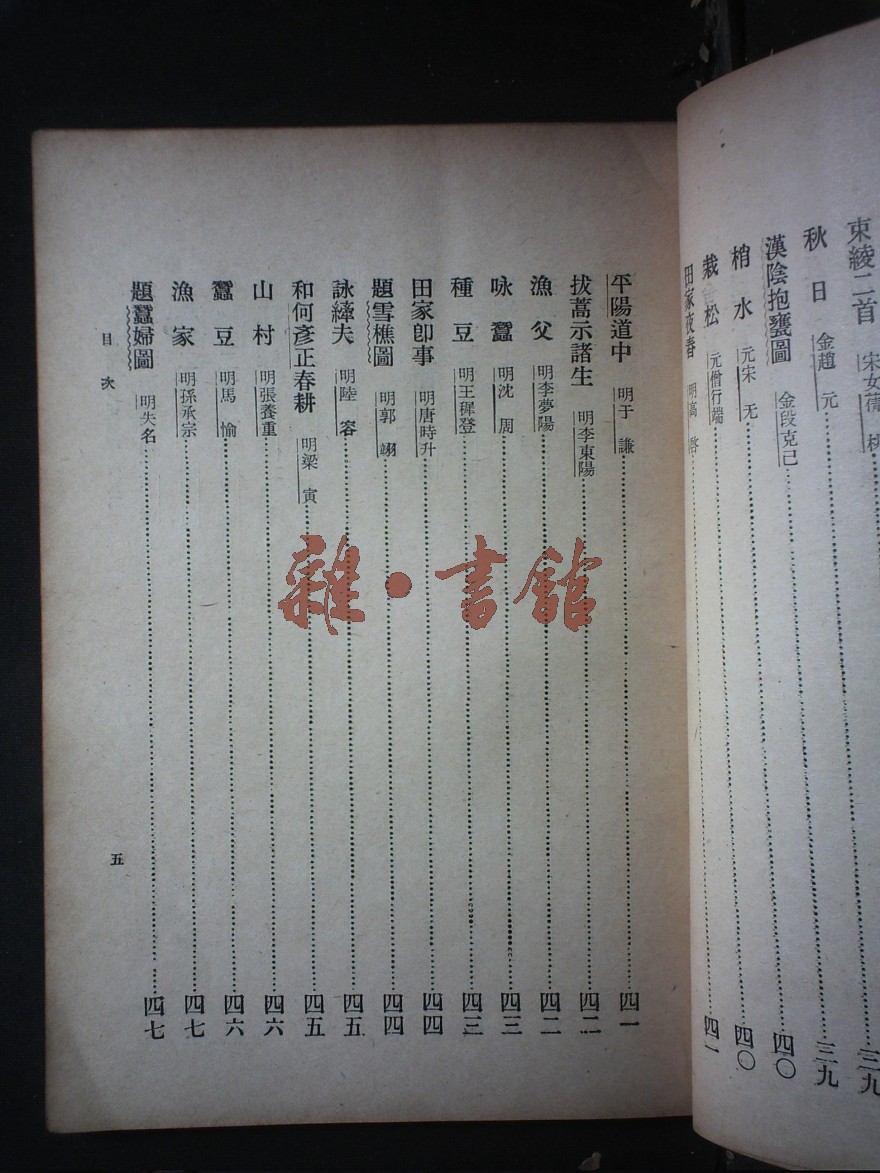 束綾二首 宋女蒨桃 三九
秋日 金趙元 三九
漢陰抱甕圖 金段克己 四〇
梢水 元宋无 四〇
栽松 元僧行端 四一
田家夜舂 明高啓
平陽道中 明于謙 四一
拔蒿示諸生 明李東陽 四二
漁父 明李夢陽 四二
咏蠶 明沈周 四三
種豆 明王穉登 四三
田家卽事 明唐時升 四四
題雪樵圖 明郭翊 四四
詠縴夫 明陸容 四五
和何彥正春耕 明梁寅 四五
山村 明張養重 四六
蠶豆 明馬愉 四六
漁家 明孫承宗 四七
題蠶婦圖 明失名 四七
目次
五
雜·書館